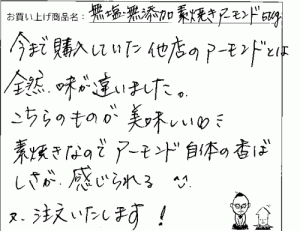 お買い上げ商品名：無塩・無添加 素焼きアーモンド 1kg
今まで購入していた他店のアーモンドとは
全然味が違いました。
こちらのものが美味しい
素焼きなのでアーモンド自体の香ば
しさが感じられる ^^
又、注文いたします！